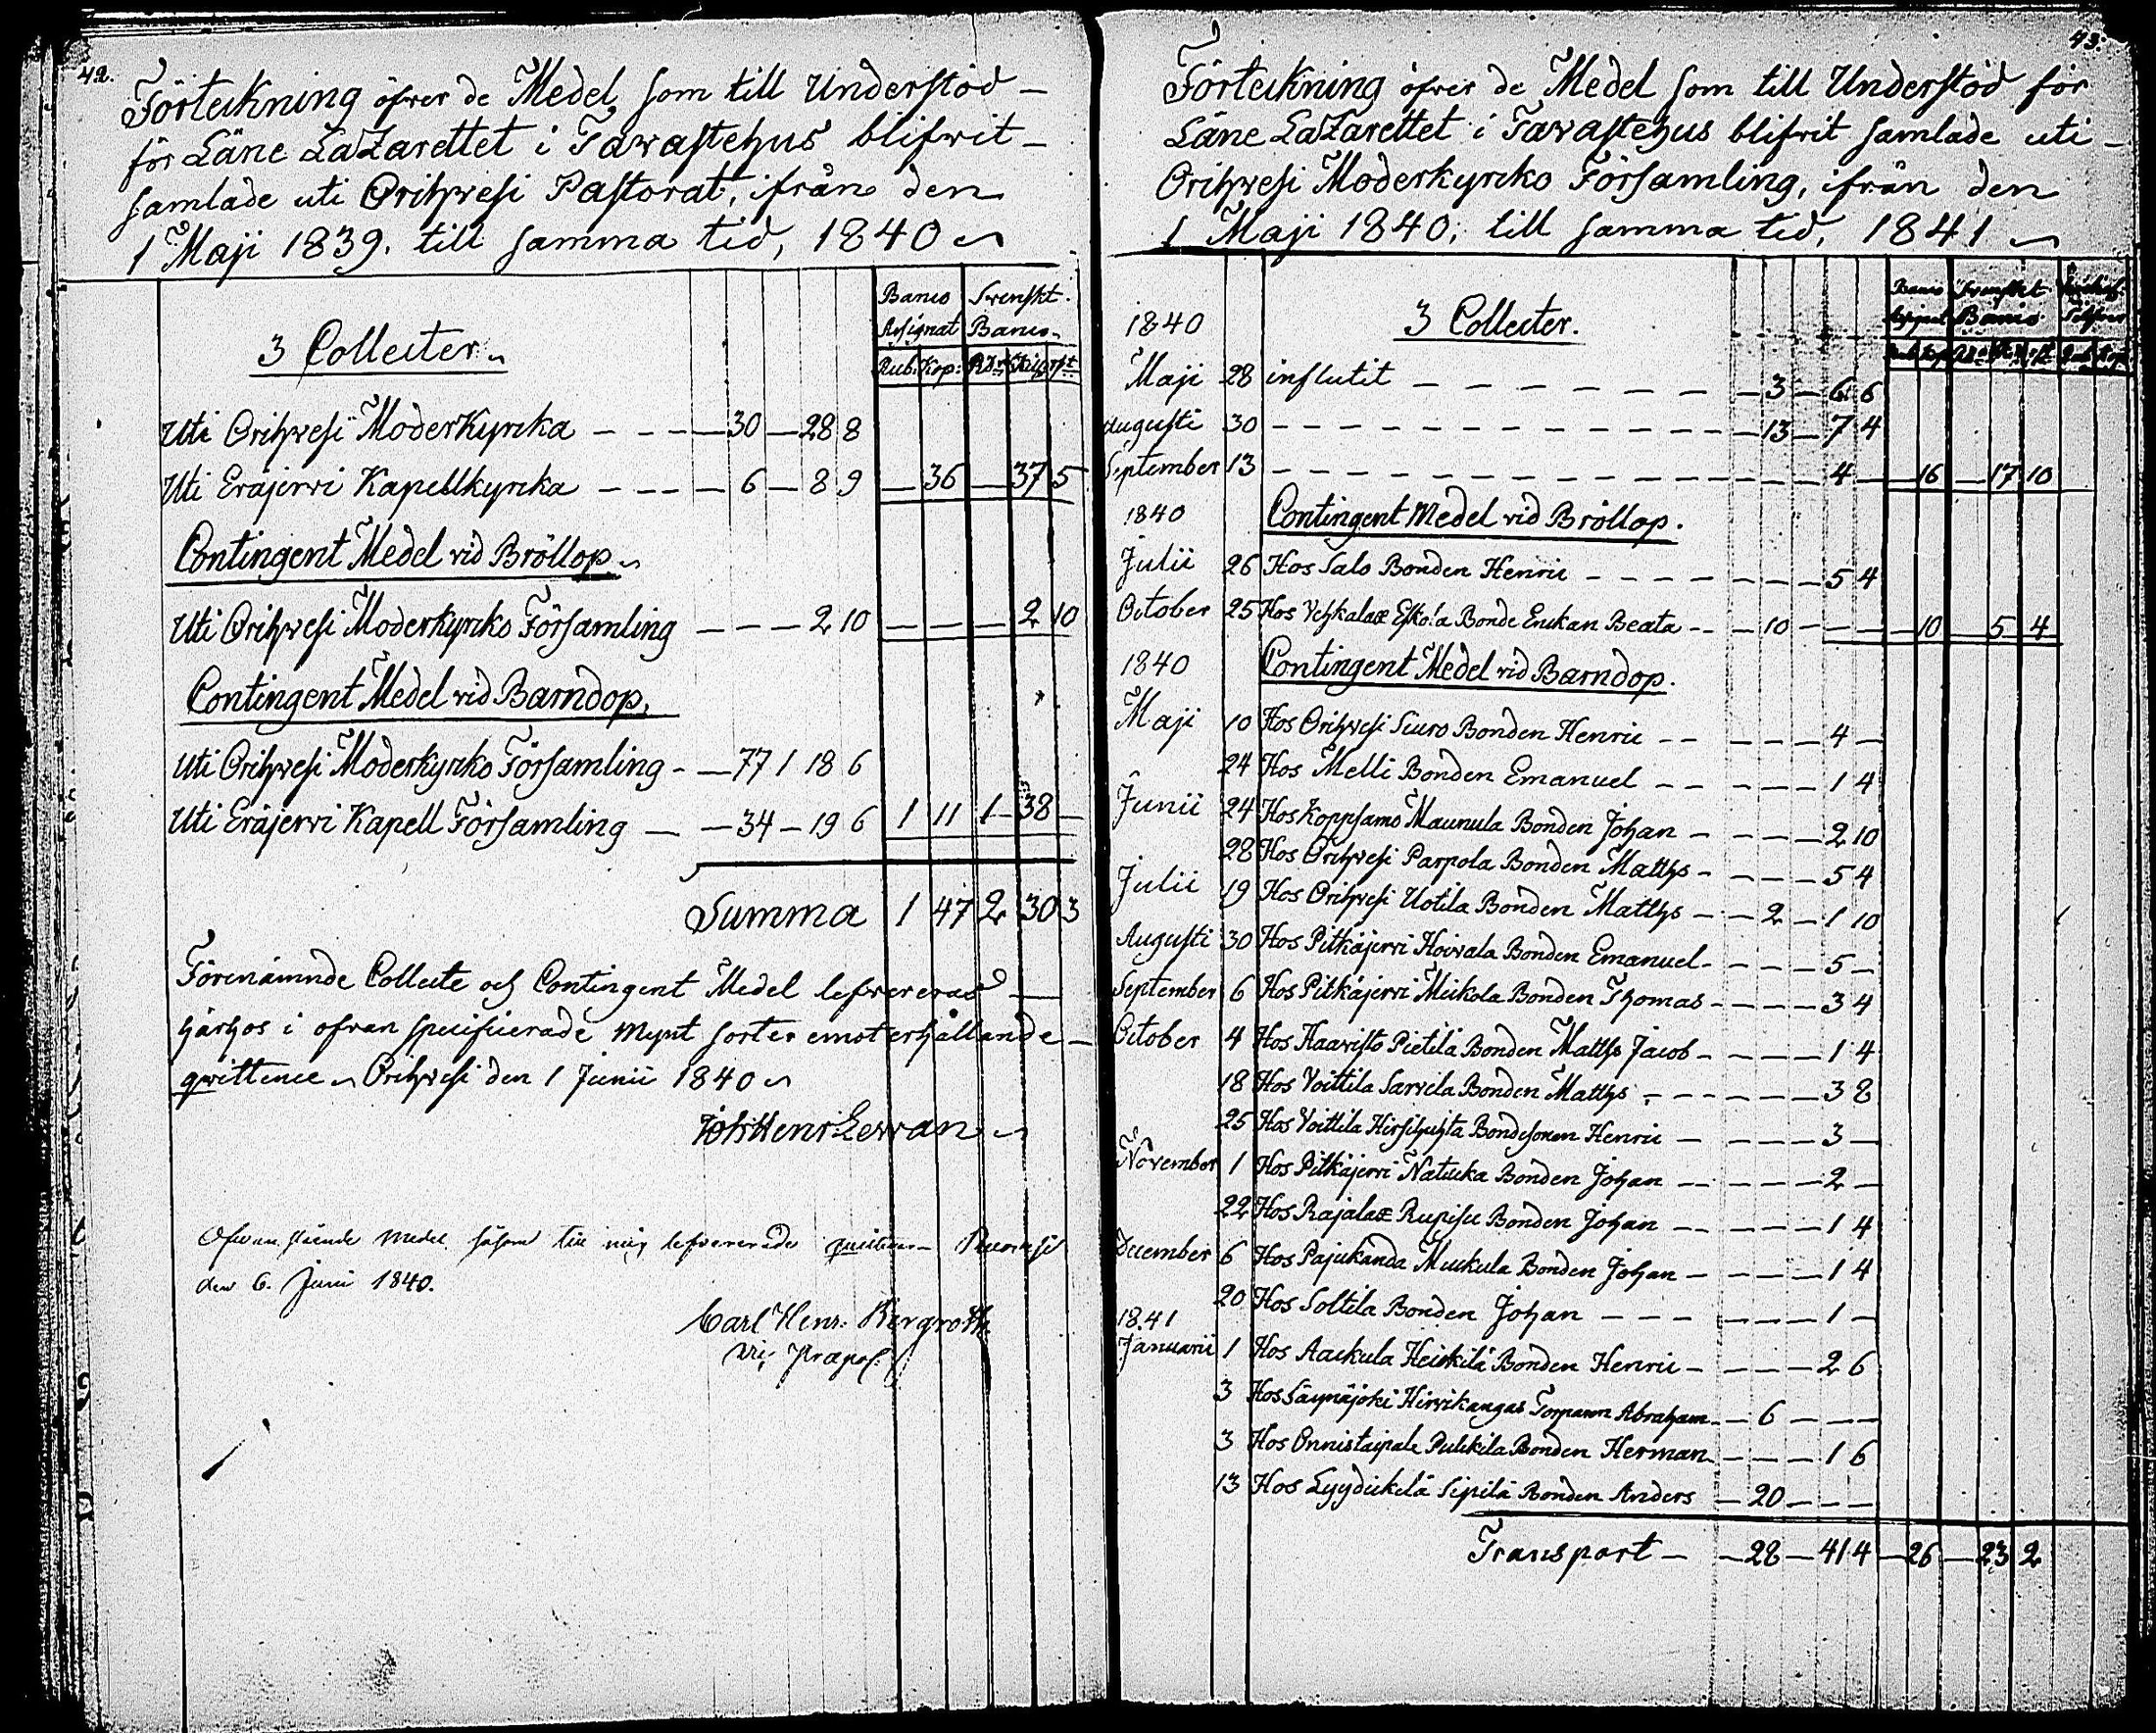 42.
Förteckning öfver de Medel som till Understöd –
för Läne Lazarettet i Tavastehus blifvit –
samlade uti Orihvesi Pastorat, ifrån den
1 Maji 1839. till samma tid, 1840
Banco Svenskt.
3 Collecter Assignat Banco.
Rub. Kop: Rdr sk rst
Uti Orihvesi Moderkyrka – – – – 30 – 28 8
Uti Eräjervi Kapellkyrka – – – – 6 – 8 9 – 36 – 37 5
Contingent Medel vid Bröllop
Uti Orihvesi Moderkyrko Församling – – – 2 10 – – – 2 10
Contingent Medel vid Barndop.
Uti Orihvesi Moderkyrko Församling - – 77 1 18 6
Uti Eräjervi Kapell Församling – – 34 – 19 6 1 11 1 38 –
Summa 1 47 2 30 3
Förenämnde Collecte och Contingent Medel lefvereras –
härhos i ofvan specificerade mynt sorter emot erhållande –
qvittence Orihvesi den 1 Junii 1840
Joh: Henr: Levan
Ofvan stående medel såsom till mig lefvererade quitteras Ruovesi
den 6. Juni 1840.
Carl Henr: Bergroth
Vic: Præpos:
43.
Förteckning öfver de Medel som till Understöd för
Läne Lazarettet i Tavastehus blifvit samlade uti –
Orihvesi Moderkyrko Församling, ifrån den
1 Maji 1840, till samma tid, 1841
1840 3 Collecter. Banco Svenskt
Assignat Banco Silfver
Rub. Kop Rdr sk rst Rub. Kop.
Maji 28 influtit – – – – – – – 3 – 6 6
Augusti 30 – – – – – – – – – 13 – 7 4
September 13 – – – – – – – – – 4 – – 16 – 17 10
1840 Contingent Medel vid Bröllop.
Julii 26 Hos Salo Bonden Henric – – – – – – – 5 4
October 25 Hos Vehkalax Eskola Bonde Enckan Beata – – – 10 – – – – 10 – 5 4
1840 Contingent Medel vid Barndop.
Maji 10 Hos Orihvesi Suuro Bonden Henric – – – – – 4 –
24 Hos Melli Bonden Emanuel – – – – – 1 4
Junii 24 Hos Koppsamo Maunula Bonden Johan – – – – 2 10
28 Hos Orihvesi Parpola Bonden Matths – – – – 5 4
Julii 19 Hos Orihvesi Uotila Bonden Matths – – 2 – 1 10
Augusti 30 Hos Pitkäjervi Hoivala Bonden Emanuel – – – – 5 –
September 6 Hos Pitkäjervi Mickola Bonden Thomas – – – – 3 4
October 4 Hos Haavisto Pietilä Bonden Matths Jacob – – – – 1 4
18 Hos Voittila Sarvela Bonden Matths – – – – – 3 8
25 Hos Voittila Hirsihuhta Bondesonen Henric – – – – 3 –
November 1 Hos Pitkäjervi Natucka Bonden Johan – – – – – 2 –
22 Hos Rajalax Rupisu Bonden Johan – – – – – 1 4
December 6 Hos Pajukanda Muckula Bonden Johan – – – – 1 4
20 Hos Soltila Bonden Johan – – – – – – 1 –
1841
Januarii 1 Hos Aackula Heickilä Bonden Henric – – – – 2 6
3 Hos Säynäjoki Hirvikangas Torparen Abraham – – 6 – – –
3 Hos Onnistaipale Pulckila Bonden Herman – – – – 1 6
13 Hos Lyydickelä Sipilä Bonden Anders – 20 – – –
Transport – – 28 – 41 4 – 26 – 23 2